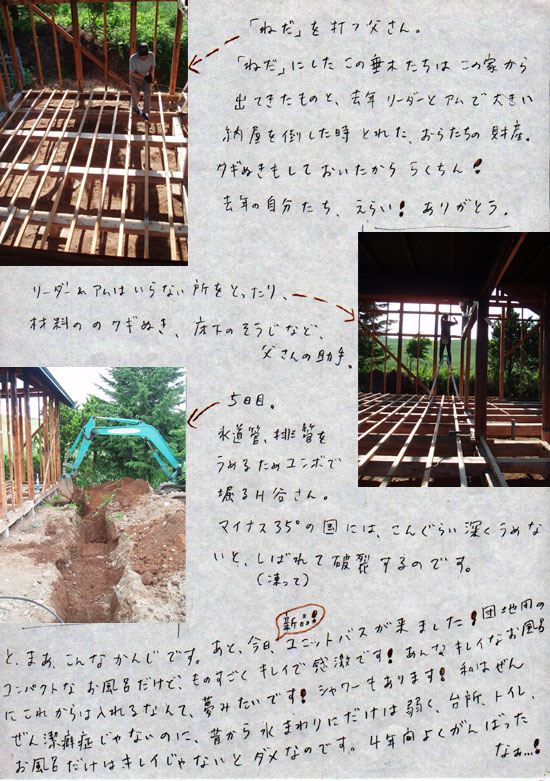 「ねだ」を打つ父さん。
「ねだ」にしたこの垂木たちはこの家から
出てきたものと、去年リーダーとアムで大きい
納屋を倒した時とれた、おらたちの財産。
クギぬきもしておいたかららくちん!
去年の自分たち、えらい! ありがとう。
リーダーとアムはいらない所をとったり、
材料ののクギぬき、床下のそうじなど、
父さんの助手。
5日目。
水道管、排管を
うめるためユンボで
堀るH谷さん。
マイナス35°の国には、こんぐらい深くうめな
いと、しばれて破裂するのです。
(凍って)
新品!
と、まぁ、こんなかんじです。あと、今日、ユニットバスが来ました!団地用の
コンパクトなお風呂だけど、ものすごくキレイで感激です!あんなキレイなお風呂
にこれからは入れるなんて、夢みたいです!シャワーもあります!私はぜん
ぜん潔癖症じゃないのに、昔から水まわりにだけは弱く、台所、トイレ、
お風呂だけはキレイじゃないとダメなのです。4年間よくがんばった
なぁ…!